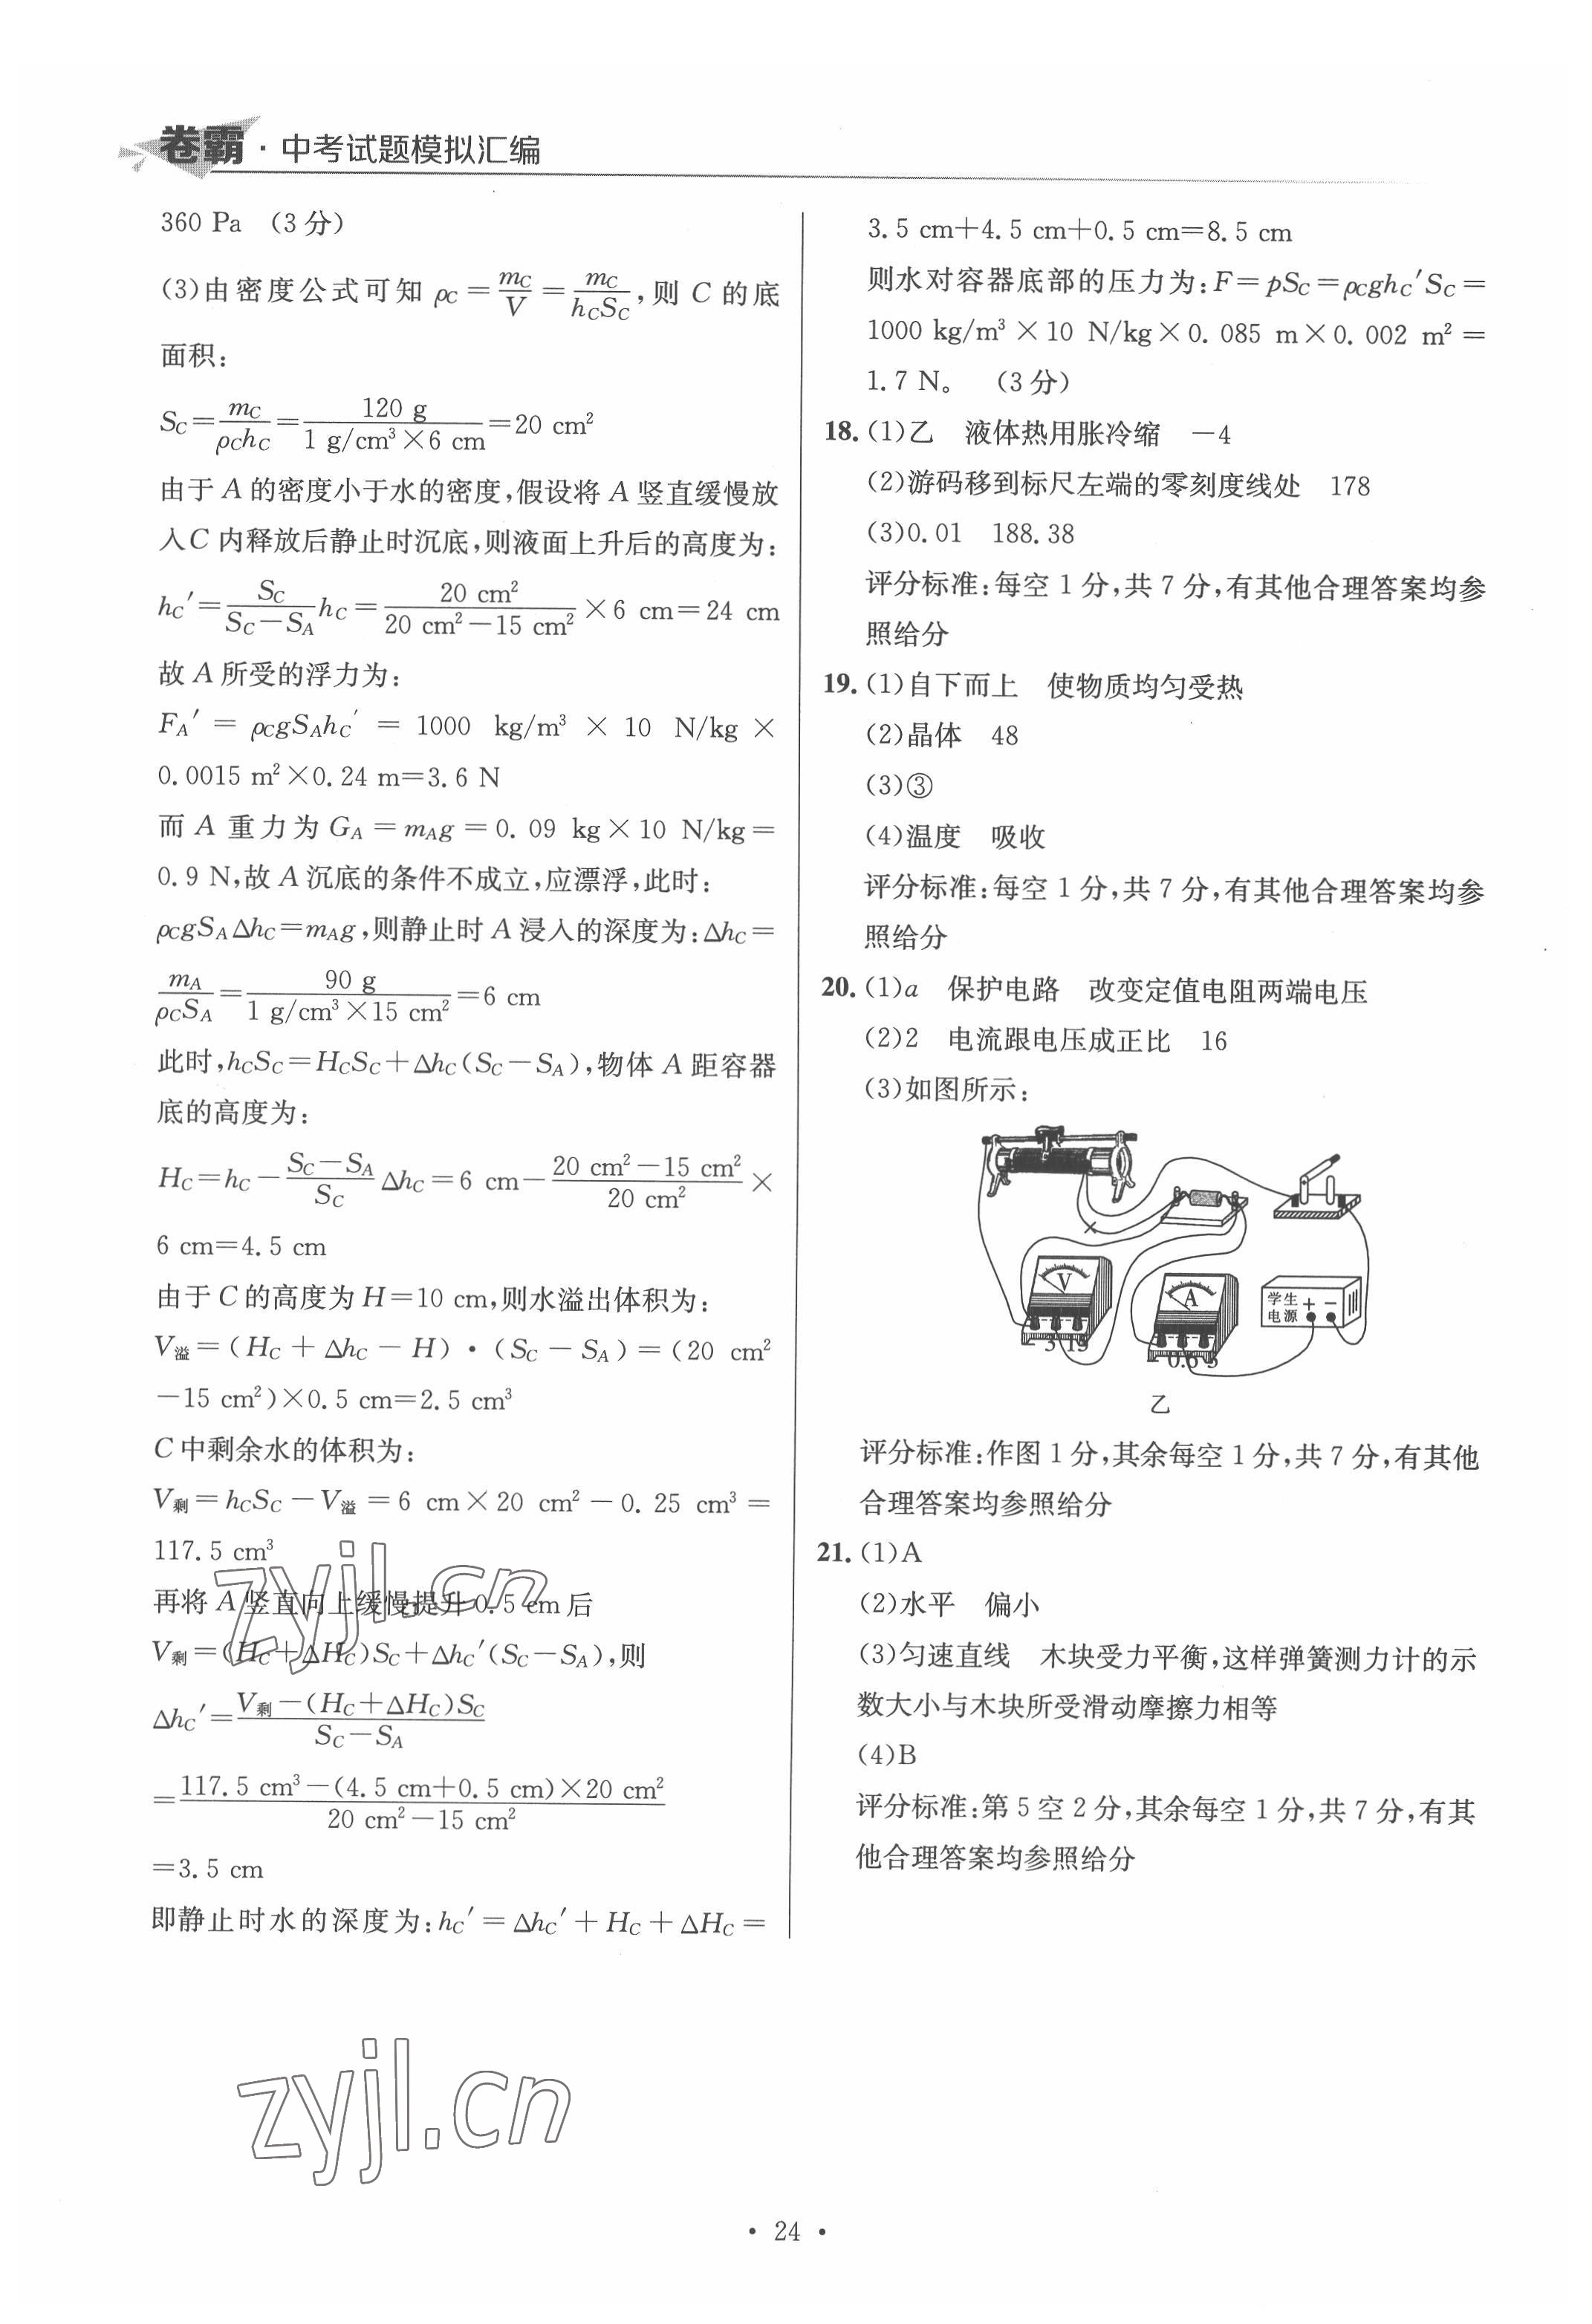 卷霸·中考试题模拟汇编
360 Pa （3分）
(3)由密度公式可知 ρC = mC/V = mC/(hCSC),则 C 的底
面积:
SC = mC/(ρChC) = 120 g/(1 g/cm³×6 cm) = 20 cm²
由于 A 的密度小于水的密度,假设将 A 竖直缓慢放
入C 内释放后静止时沉底,则液面上升后的高度为:
hC′ = SC/(SC−SA) hC = 20 cm²/(20 cm²−15 cm²) ×6 cm=24 cm
故 A 所受的浮力为:
FA′ = ρCgSAhC′ = 1000 kg/m³ × 10 N/kg ×
0.0015 m²×0.24 m=3.6 N
而 A 重力为 GA = mAg = 0.09 kg×10 N/kg=
0.9 N,故 A 沉底的条件不成立,应漂浮,此时:
ρCgSAΔhC=mAg,则静止时 A 浸入的深度为:ΔhC=
mA/(ρCSA) = 90 g/(1 g/cm³×15 cm²) = 6 cm
此时,hCSC=HCSC+ΔhC(SC−SA),物体 A 距容器
底的高度为:
HC=hC − (SC−SA)/SC ΔhC=6 cm− (20 cm²−15 cm²)/(20 cm²) ×
6 cm=4.5 cm
由于 C 的高度为 H=10 cm,则水溢出体积为:
V溢=(HC + ΔhC − H)·(SC − SA)=(20 cm²
−15 cm²)×0.5 cm=2.5 cm³
C 中剩余水的体积为:
V剩 = hCSC − V溢 = 6 cm×20 cm² − 0.25 cm³ =
117.5 cm³
再将 A 竖直向上缓慢提升 0.5 cm后
V剩=(HC+ΔHC)SC+ΔhC′(SC−SA),则
ΔhC′ = (V剩−(HC+ΔHC)SC)/(SC−SA)
= (117.5 cm³−(4.5 cm+0.5 cm)×20 cm²)/(20 cm²−15 cm²)
=3.5 cm
即静止时水的深度为:hC′ = ΔhC′ + HC + ΔHC =
3.5 cm+4.5 cm+0.5 cm=8.5 cm
则水对容器底部的压力为:F=pSC=ρCghC′SC=
1000 kg/m³×10 N/kg×0.085 m×0.002 m² =
1.7 N。 （3分）
18.(1)乙 液体热用胀冷缩 −4
(2)游码移到标尺左端的零刻度线处 178
(3)0.01 188.38
评分标准:每空 1 分,共 7 分,有其他合理答案均参
照给分
19.(1)自下而上 使物质均匀受热
(2)晶体 48
(3)③
(4)温度 吸收
评分标准:每空 1 分,共 7 分,有其他合理答案均参
照给分
20.(1)a 保护电路 改变定值电阻两端电压
(2)2 电流跟电压成正比 16
(3)如图所示:
V
− 3 15
A
− 0.6 3
学生
电源
+ −
乙
评分标准:作图 1 分,其余每空 1 分,共 7 分,有其他
合理答案均参照给分
21.(1)A
(2)水平 偏小
(3)匀速直线 木块受力平衡,这样弹簧测力计的示
数大小与木块所受滑动摩擦力相等
(4)B
评分标准:第 5 空 2 分,其余每空 1 分,共 7 分,有其
他合理答案均参照给分
zyjl.cn
zyjl.cn
· 24 ·